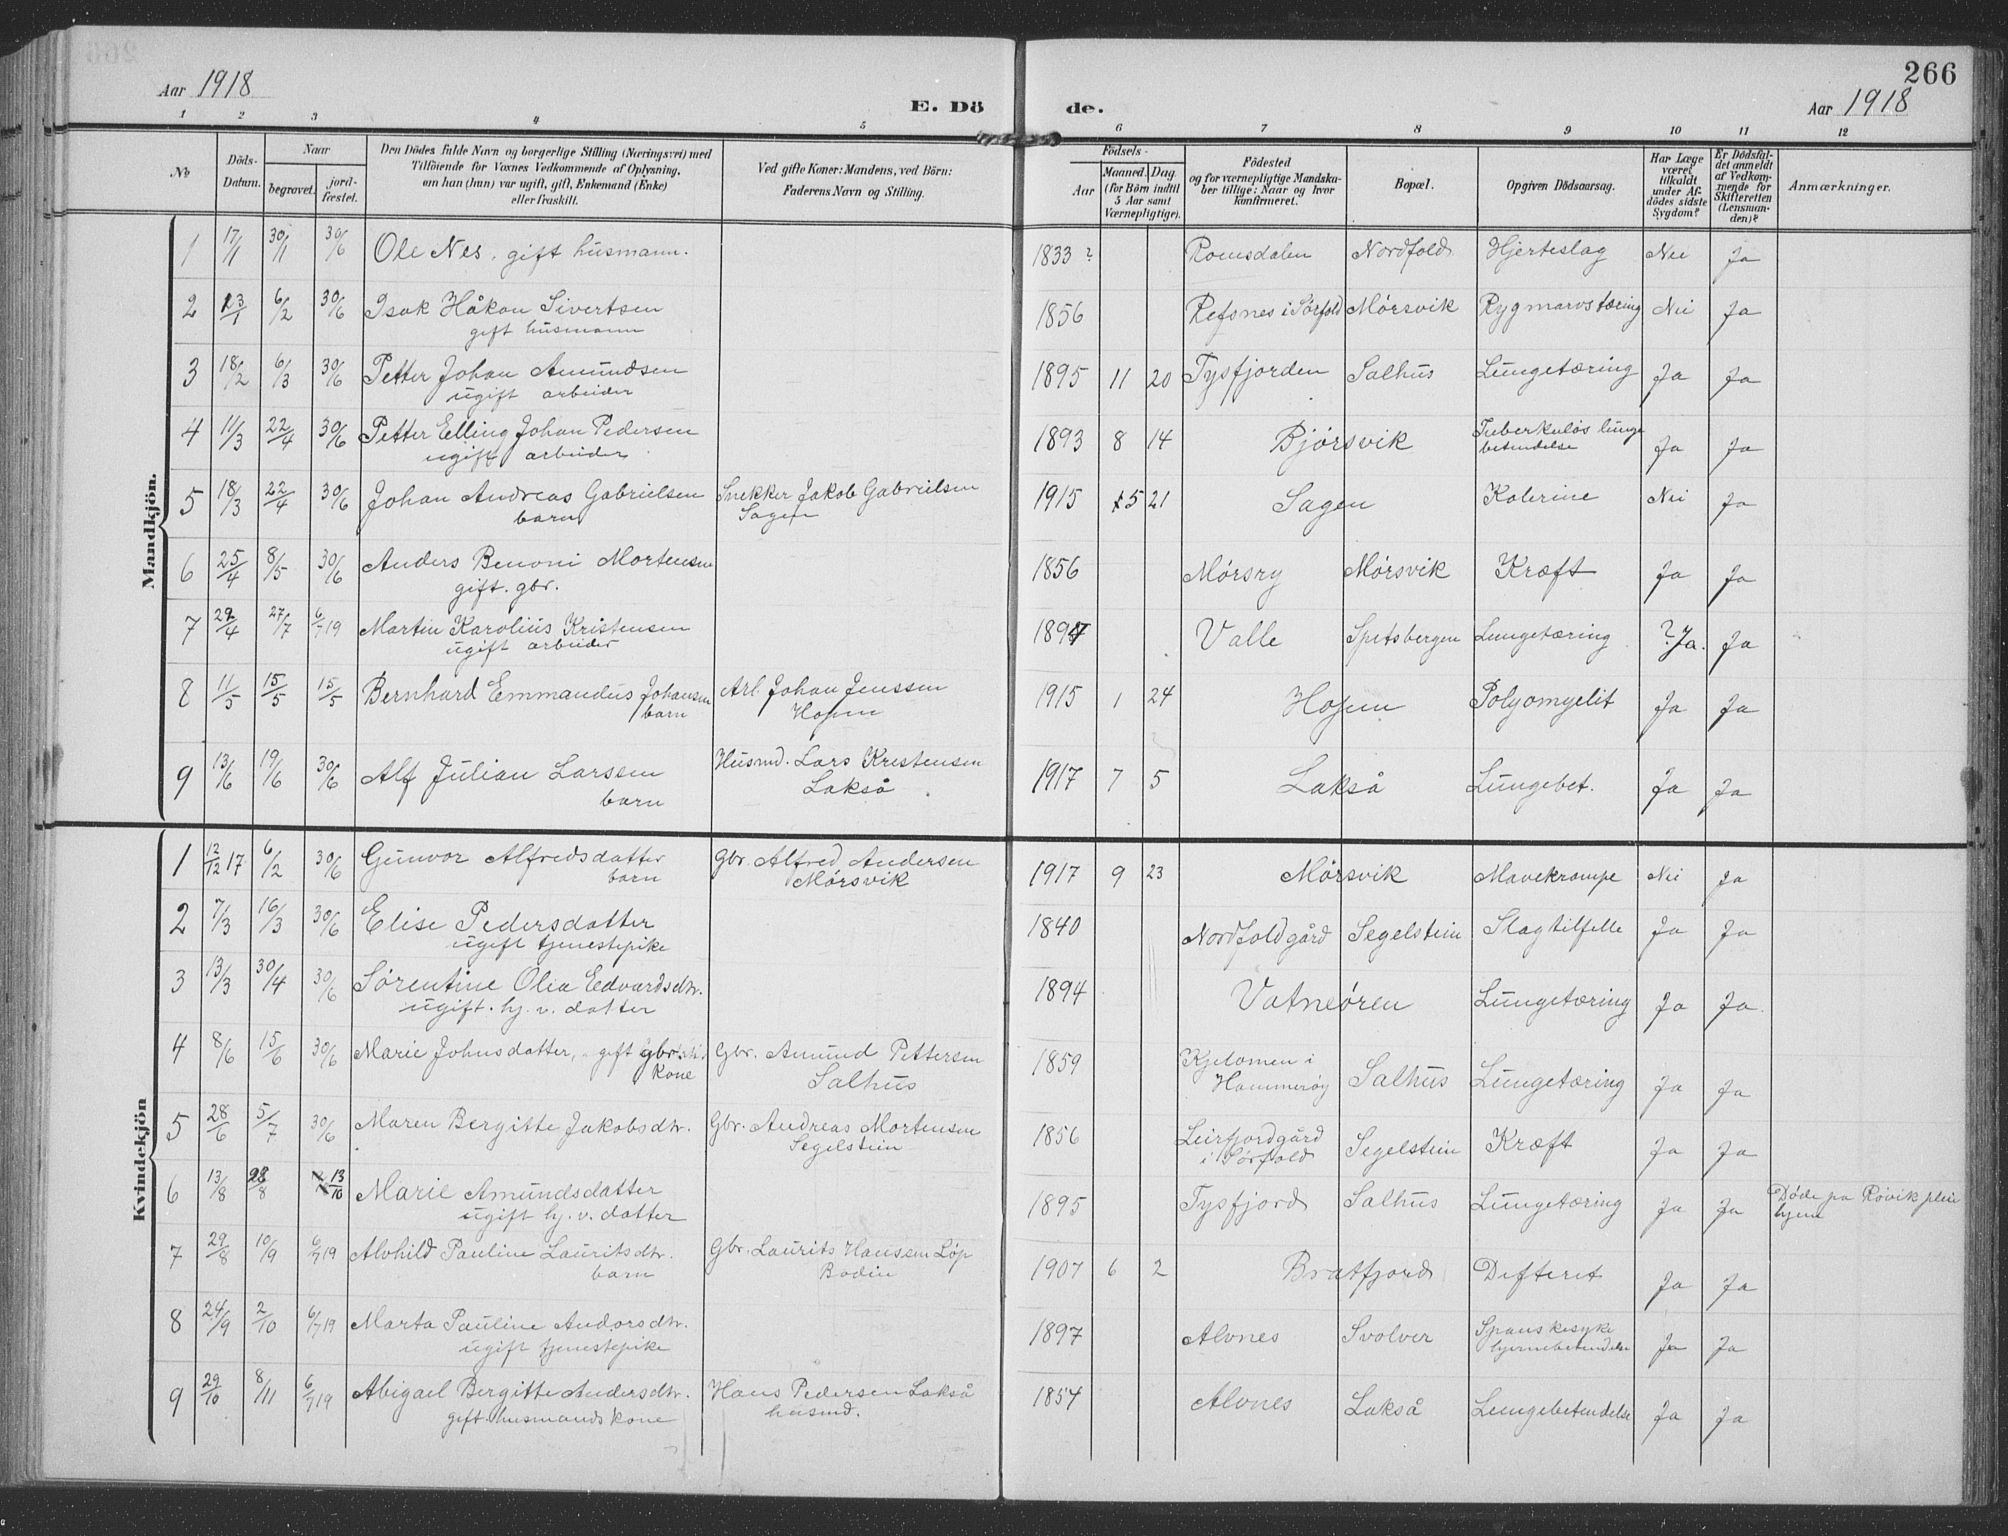 Aar 1918
E. Dö
de.
266
Aar 1918
1 2 3 4 5 6 7 8 9 10 11 12
No
Döds-Datum.
Naar
begravet.
jord-fæstet.
Den Dödes fulde Navn og borgerlige Stilling (Næringsvei) med
Tilföiende for Voxnes Vedkommende af Oplysning,
om han (hun) var ugift, gift, Enkemand (Enke)
eller fraskilt.
Ved gifte Koner: Mandens, ved Börn:
Faderens Navn og Stilling.
Födsels-
Aar
Maaned. Dag.
(for Börn indtil
5 Aar samt
Værnepligtige).
Födested
og for værnepligtige Mandska-
ber tillige: Naar og hvor
konfirmeret.
Bopæl.
Opgiven Dödsaarsag.
Har Læge
været
tilkaldt
under Af-
dödes sidste
Sygdom?
Er Dödsfal-
det anmeldt
af Vedkom-
mende for
Skifteretten
(Lensman-
den)?
Anmærkninger.
Mandkjön.
1 17/1 30/1 30/6 Ole Nes, gift husmann. 1833? Romsdalen Nordfold Hjerteslag Nei Ja
2 23/1 6/2 30/6 Isak Håkon Sivertsen 1856 Refsnes i Sörfold Mørsvik Rygmarvstæring Nei Ja
gift husmann
3 18/2 6/3 30/6 Petter Johan Amundsen 1895 11 20 Tysfjorden Salhus Lungetæring Ja Ja
ugift arbeider
4 11/3 22/4 30/6 Petter Elling Johan Pedersen 1893 8 14 Bjørsvik Tuberkuløs lunge
ugift arbeider betendelse Ja Ja
5 18/3 22/4 30/6 Johan Andreas Gabrielsen Snekker Jakob Gabrielsen 1915 5 21 Sagen Kolerine Nei Ja
barn Sagen
6 25/4 8/5 30/6 Anders Benoni Mortensen 1856 Mørsry Mørsvik Kræft Ja Ja
gift. gbr.
7 29/4 27/7 6/7 19 Martin Karolius Kristensen 1897 Valle Spitsbergen Lungetæring ? Ja. Ja
ugift arbeider
8 11/5 15/5 15/5 Bernhard Emmandus Johansen Arb. Johan Jenssen 1915 1 24 Hopen Polyomyelit Ja Ja
barn Hopen
9 13/6 19/6 30/6 Alf Julian Larsen Husmd. Lars Kristensen 1917 7 5 Lakså Lungebet. Ja Ja
barn Lakså
Kvindekjön
1 12/12 17 6/2 30/6 Gunvor Alfredsdatter Gbr. Alfred Andersen 1917 9 23 Mørsvik Mavekrampe Nei Ja
barn Mørsvik
2 7/3 16/3 30/6 Elise Pedersdatter 1840 Nordfoldgård Segelstein Slagtilfelle Ja Ja
ugift tjenestepike
3 13/3 30/4 30/6 Sørentine Olia Edvardsdtr. 1894 Vatneøren Lungetæring Ja Ja.
ugift. hj. v. datter
4 8/6 15/6 30/6 Marie Johnsdatter, gift gbr. Gbr. Amund Pettersen 1859 Kjelomen i Salhus Lungetæring Ja Ja
kone Salhus Hammerøy
5 28/6 5/7 30/6 Maren Bergitte Jakobsdtr. Gbr. Andreas Mortensen 1856 Leirfjordgård Segelstein Kræft Ja Ja
Segelstein i Sørfold
6 13/8 28/8 13/10 Marie Amundsdatter 1895 Tysfjord Salhus Lungetæring Ja Ja Døde på Røvik pleie
ugift hj. v. datter hjem
7 29/8 10/9 6/7 19 Alvhild Pauline Lauritsdtr. Gbr. Laurits Hanssen Løp 1907 6 2 Bratfjord Difterit Ja Ja
barn Bodin
8 24/9 2/10 6/7 19 Marta Pauline Andorsdtr. 1897 Alvnes Svolver Spanskesyke Ja Ja
ugift tjenestepike hjernebetendelse
9 29/10 8/11 6/7 19 Abigael Bergitte Andersdtr. Hans Pedersen Lakså 1857 Alvnes Lakså Lungebetendelse Ja Ja
gift. husmandskone husmd.